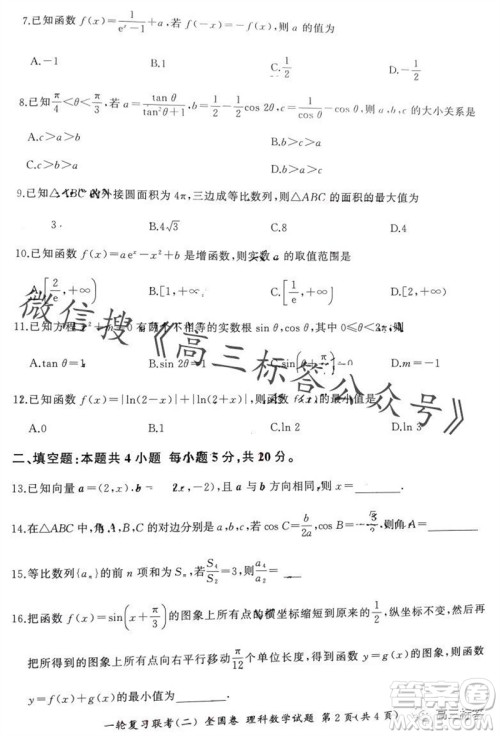 7.已知函数 f(x)=1/(eˣ−1)+a,若 f(−x)=−f(x),则 a 的值为
A.−1 B.1 C.1/2 D.
8.已知 π/4<θ<π/3,若 a=tan θ/(tan²θ+1),b=cos 2θ,c=1/cos θ−cos θ,则 a,b,c 的大小关系是
A.c>a> B.c>b>a
C.b>c>a D.a>b>c
9.已知△ABC 的外接圆面积为 4π,三边成等比数列,则△ABC 的面积的最大值为
3 B.4√3 C.8 D.4
10.已知函数 f(x)=a eˣ−x²+b 是增函数,则实数 a 的取值范围是
A.[2/e,+∞) B. ,+∞) C.[ ,+∞) D.[2,+∞)
11.已知方程 有两个不相等的实数根 sin θ,cos θ,其中 0≤θ< ,则
A.tan θ=1 B.sin 2θ=1 C.sin(θ+π/ )= D.cos θ=
12.已知函数 f(x)=|ln(2−x)|+|ln( )|, f(x)的最小值为
A.0 B. C.ln 2 D.2ln 2
二、填空题:本题共 4 小题 每小题 5 分,共 20 分。
13.已知向量 a=(2,x), 2x,−2), 则 x= .
14.在△ABC 中,角 A, C 的对边分别是 a,b,c, b/2a =cos( ),则角A= .
15.等比数列{aₙ}的前 n 项和为 Sₙ,S₄/S₂=3,则 a₄/a₂= .
16.把函数 f(x)=sin(x+π/3)的图象上所有点的横坐标缩短到原来的1/2,纵坐标不变,再
把所得的图象上所有的点向右平移π/12个单位长度,得到函数 g(x)的图象,则函数 y=
f(x)+g(x)的最小值为 .
一轮复习联考(二) 全国卷 理科数学试题 第 2 页(共 4 页)
微信搜《高三标答公众号》
高三标答